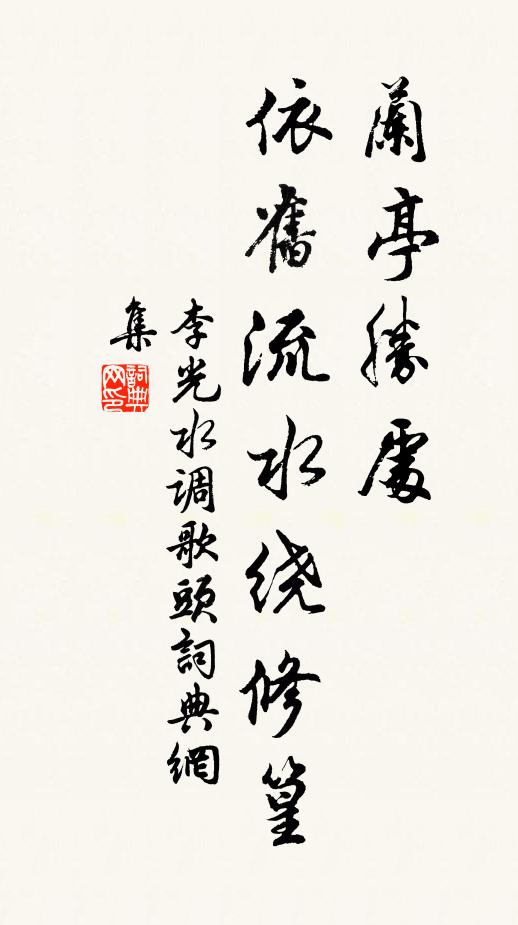 蘭亭勝處
依舊流水繞修篁
李光水调歌頭詞典網
集
詞典
网印